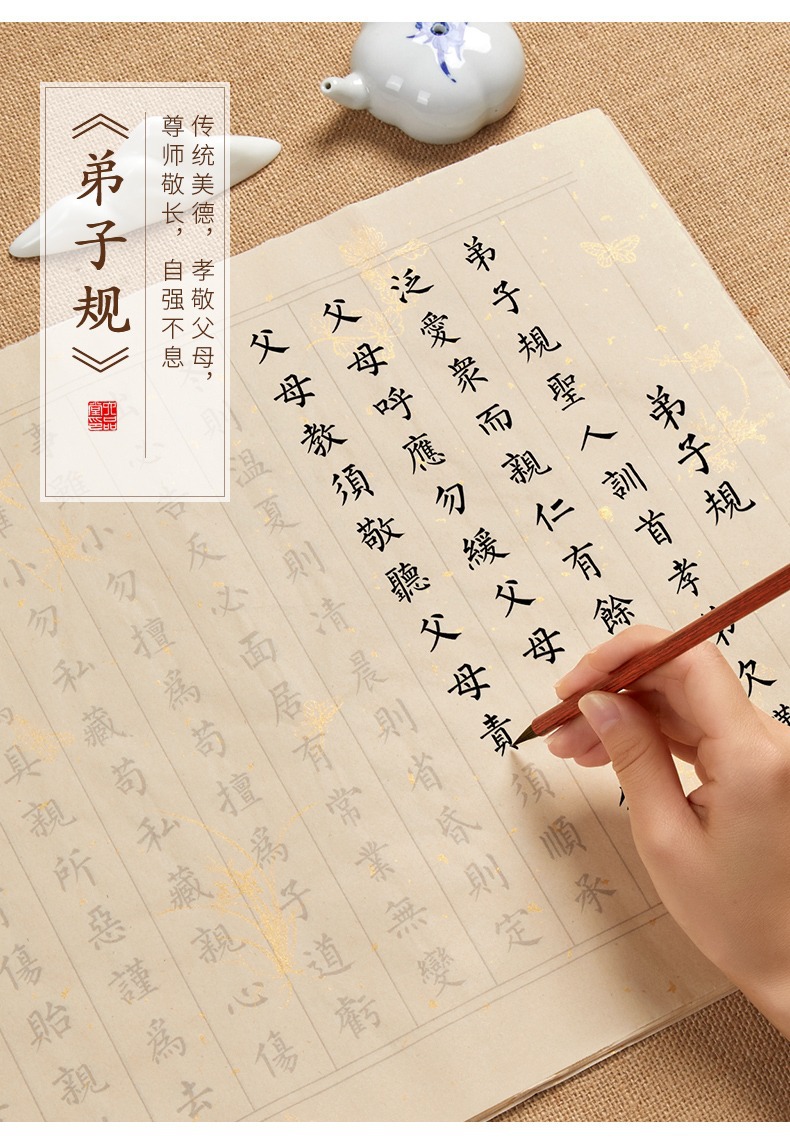 《弟子规》
传统美德，孝敬父母，
尊师敬长，自强不息
六品堂印
弟子規
弟子規聖人訓首孝弟次
泛愛衆而親仁有餘
父母呼應勿緩父母
父母教須敬聽父母責須順承
則溫夏則清晨則省昏則定
心告反必面居有常業無變
雖小勿擅為苟擅為子道虧
雖小勿私藏苟私藏親心傷
具親所惡謹為去
傷貽親